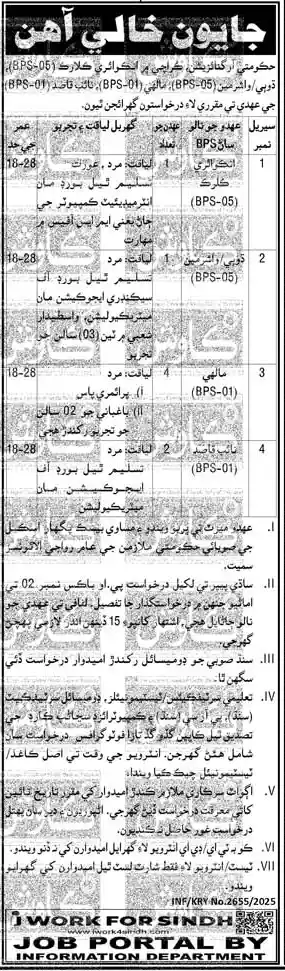 جايون خالي آهن
حڪومتي آرگنائزيشن، ڪراچي ۾ انڪوائري ڪلارڪ (BPS-05)،
ڊوٻي/واشرمين (BPS-05)، مالهي (BPS-01)، نائب قاصد (BPS-01)
جي عهدي تي مقرري لاءِ درخواستون گهرائجن ٿيون.
سيريل نمبر
عهدو جو نالو ۽ BPS
عهدن جو تعداد
گهربل لياقت ۽ تجربو
عمر جي حد
1
انڪوائري
ڪلارڪ
(BPS-05)
1
لياقت: مرد، عورت
تسليم ٿيل بورڊ مان
انٽرميڊيئيٽ ڪمپيوٽر جي
ڄاڻ يعني ايم ايس آفيس ۾
مهارت
18-28
2
ڊوٻي/واشرمين
(BPS-05)
1
لياقت: مرد
تسليم ٿيل بورڊ آف
سيڪنڊري ايجوڪيشن مان
ميٽريڪوليشن، واسطيدار
شعبي ۾ ٽين (03) سالن جو
تجربو
18-28
3
مالهي
(BPS-01)
4
لياقت: مرد
i) پرائمري پاس
ii) باغباني جو 02 سالن
جو تجربو رکندڙ هجي
18-28
4
نائب قاصد
(BPS-01)
2
لياقت: مرد
تسليم ٿيل بورڊ آف
ايجوڪيشن مان
ميٽريڪوليشن
18-28
I. عهدو ميرٽ تي ڀريو ويندو ۽ مساوي بيسڪ پگهار اسڪيل
جي صوبائي حڪومتي ملازمن جي عام رواجي الائونسز
سميت.
II. سادي پيپر تي لکيل درخواست پي.او باڪس نمبر 02 تي
اماڻيو جنهن ۾ درخواستگذار جا تفصيل، لفافي تي عهدي جو
نالو ڄاڻايل هجي، اشتهار کانپوءِ 15 ڏينهن اندر لازمي پهچڻ
گهرجي.
III. سنڌ صوبي جو ڊوميسائل رکندڙ اميدوار درخواست ڏئي
سگهن ٿا.
IV. تعليمي سرٽيفڪيٽس/ٽيسٽيمونيئلز، ڊوميسائل سرٽيفڪيٽ
(سنڌ)، پي آر سي (سنڌ) ۽ ڪمپيوٽرائزڊ سڃاڻپ ڪارڊ جي
تصديق ٿيل ڪاپين گڏوگڏ تازا فوٽوگرافس درخواست سان
شامل هئڻ گهرجن. انٽرويو جي وقت تي اصل ڪاغذ/
ٽيسٽيمونيئل چيڪ ڪيا ويندا.
V. اڳ ۾ سرڪاري ملازم ڪندڙ اميدوارن کي مقرر تاريخ تائين
کاتي معرفت درخواست ڏيڻ گهرجي. اڻپوريون ۽ دير سان پهتل
درخواست غور حاصل نه ڪنديون.
VI. ڪو به ٽي اي/ڊي اي انٽرويو لاءِ گهرايل اميدوارن کي نه ڏنو ويندو.
VII. ٽيسٽ/انٽرويو لاءِ فقط شارٽ لسٽ ٿيل اميدوارن کي گهرايو
ويندو.
INF/KRY No.2655/2025
I WORK FOR SINDH
www.iwork4sindh.com
JOB PORTAL BY
INFORMATION DEPARTMENT